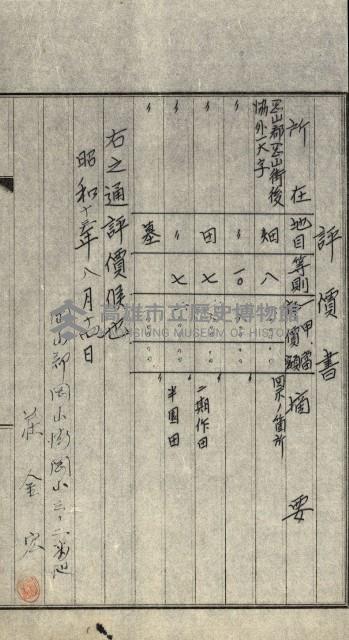 評價書
所在 地目 等則 甲當價額 摘要
岡山郡岡山街後
協外一大字
畑 八 圖示ノ箇所
〃 〃 一〇 〃
〃 田 七 〃 二期作田
〃 〃 七 〃 半圓田
〃 墓 〃
右之通評價候也
昭和十年八月十四日
岡山郡岡山街岡山三,二番地
莊金安
高雄市立歷史博物館
KAOHSIUNG MUSEUM OF HISTORY